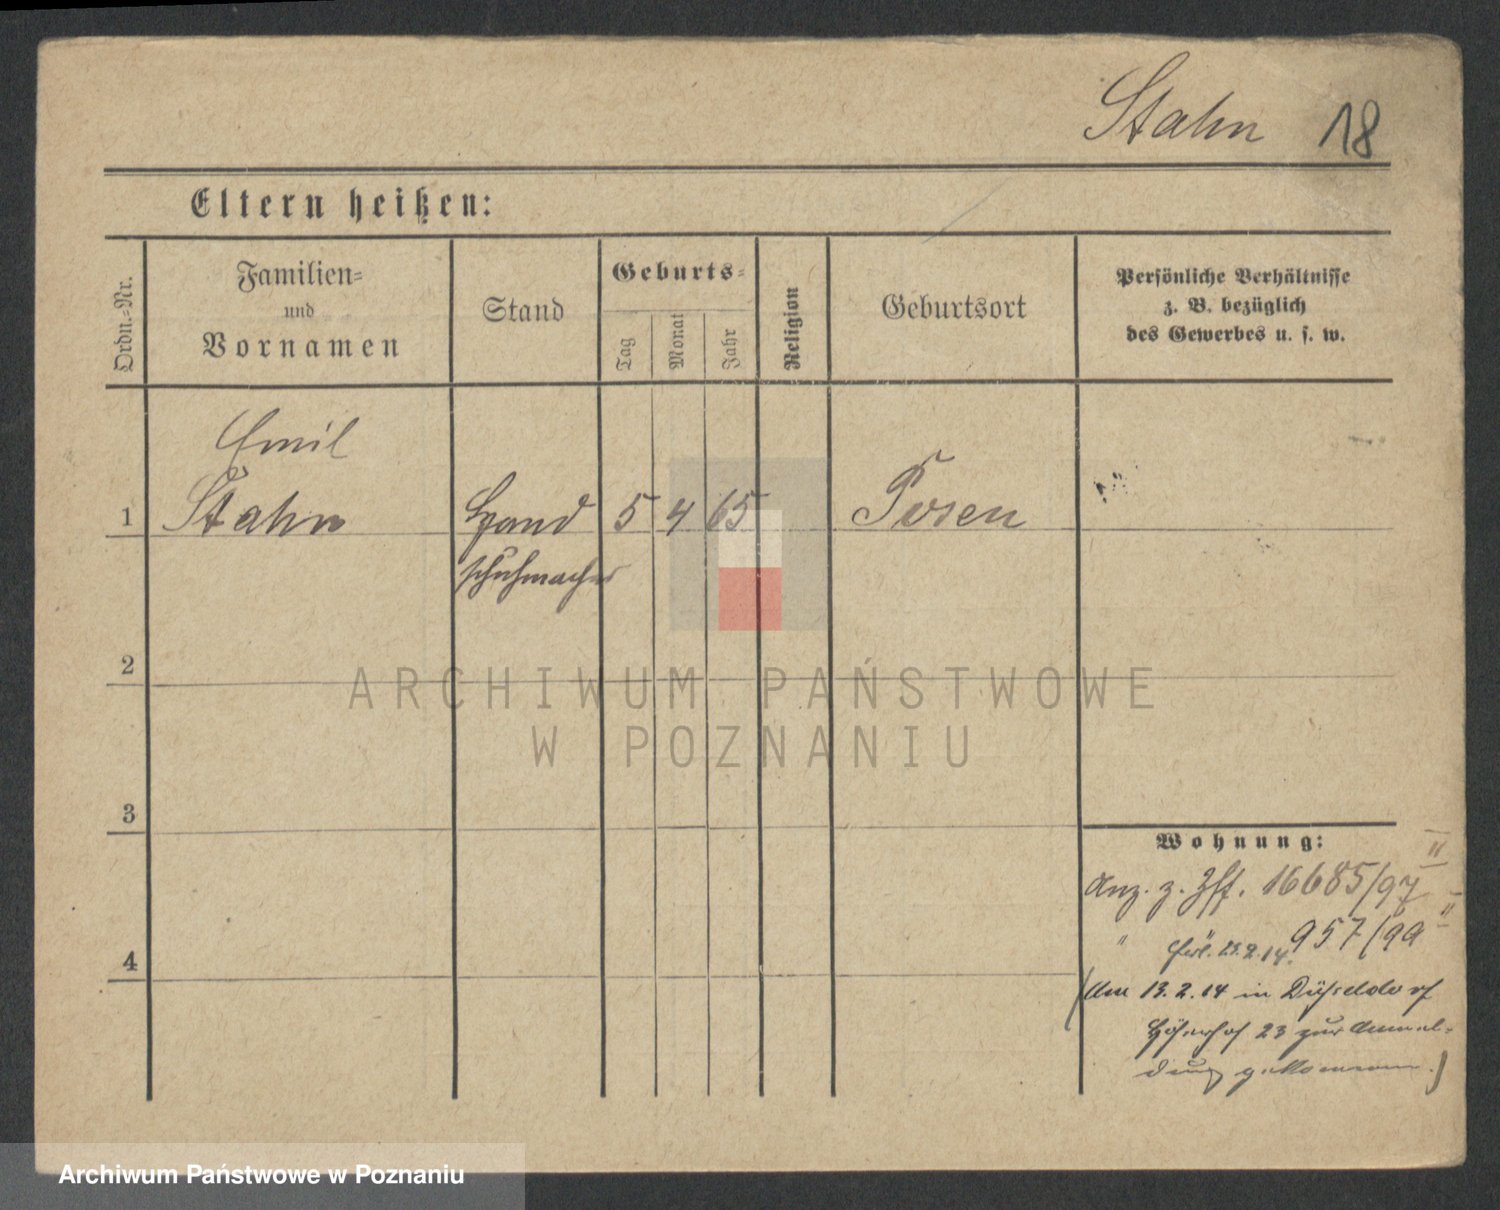 Stahn 18
Eltern heißen:
Ordn.-Nr.
Familien-
und
Vornamen
Stand
Geburts-
Tag
Monat
Jahr
Religion
Geburtsort
Persönliche Verhältnisse
z. B. bezüglich
des Gewerbes u. s. w.
Emil
1 Stahn Hand 5 4 65 Posen
schuhmacher
2
ARCHIWUM PAŃSTWOWE
W POZNANIU
3
Wohnung:
Anz. z. Zff. 16685/97 II
" 957/99 "
erl. 23.2.14.
(Am 13.2.14 in Düsseldorf
23 zur Anmel-
dung gekommen.)
4
Archiwum Państwowe w Poznaniu